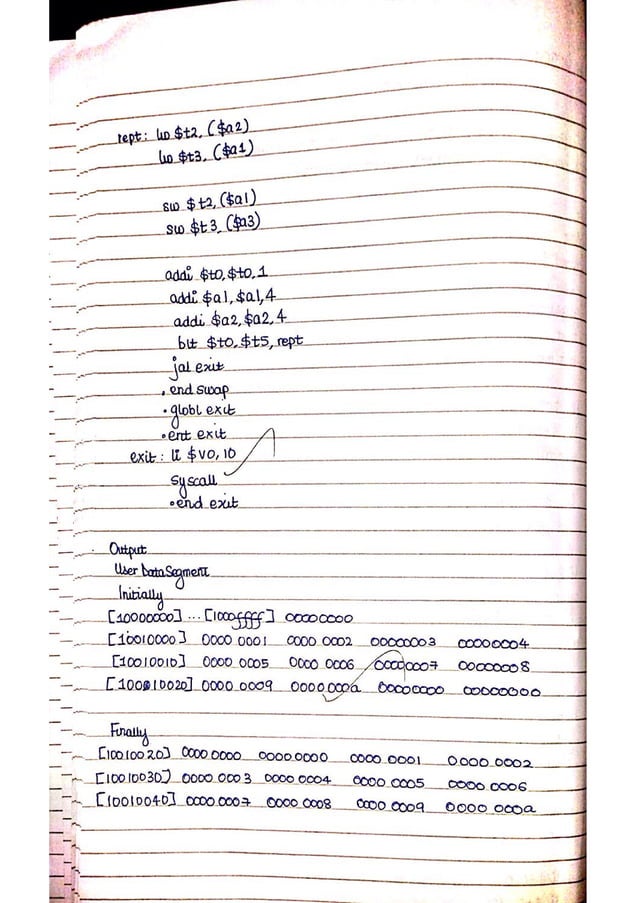 rept: lw $t2, ($a2)
lw $t3, ($a1)
sw $t2, ($a1)
sw $t3, ($a3)
addi $t0, $t0, 1
addi $a1, $a1, 4
addi $a2, $a2, 4
blt $t0, $t5, rept
jal exit
.end swap
.globl exit
.ent exit
exit: li $v0, 10
syscall
.end exit
Output
User Data Segment
Initially
[10000000] ... [1000ffff] 00000000
[10010000] 0000 0001 0000 0002 00000003 00000004
[10010010] 0000 0005 0000 0006 00000007 00000008
[10010020] 0000 0009 0000 000a 00000000 00000000
Finally
[10010020] 0000 0000 0000 0000 0000 0001 0000 0002
[10010030] 0000 0003 0000 0004 0000 0005 0000 0006
[10010040] 0000 0007 0000 0008 0000 0009 0000 000a